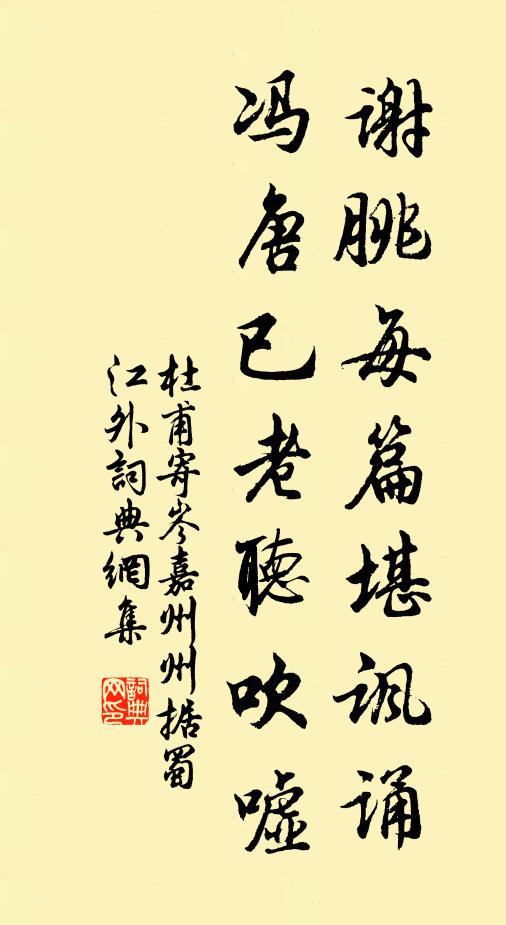 谢朓每篇堪讽诵
冯唐已老聽吹嘘
杜甫寄岑嘉州州据蜀
江外詞典網集
詞典网印